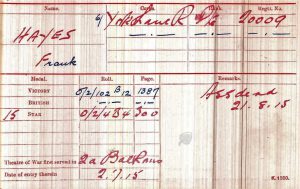 Corps. Rank. Regtl. No.
6/Yorks Pte 20009
HAYES
Frank
Medal. Roll. Page. Remarks.
VICTORY 0/2/102 B12 1387 Ass dead
BRITISH —"— —"— 21.8.15
15 STAR 0/2/4 B4 300
Theatre of War first served in 2a Balkans
Date of entry therein 2.7.15
K. 1380.